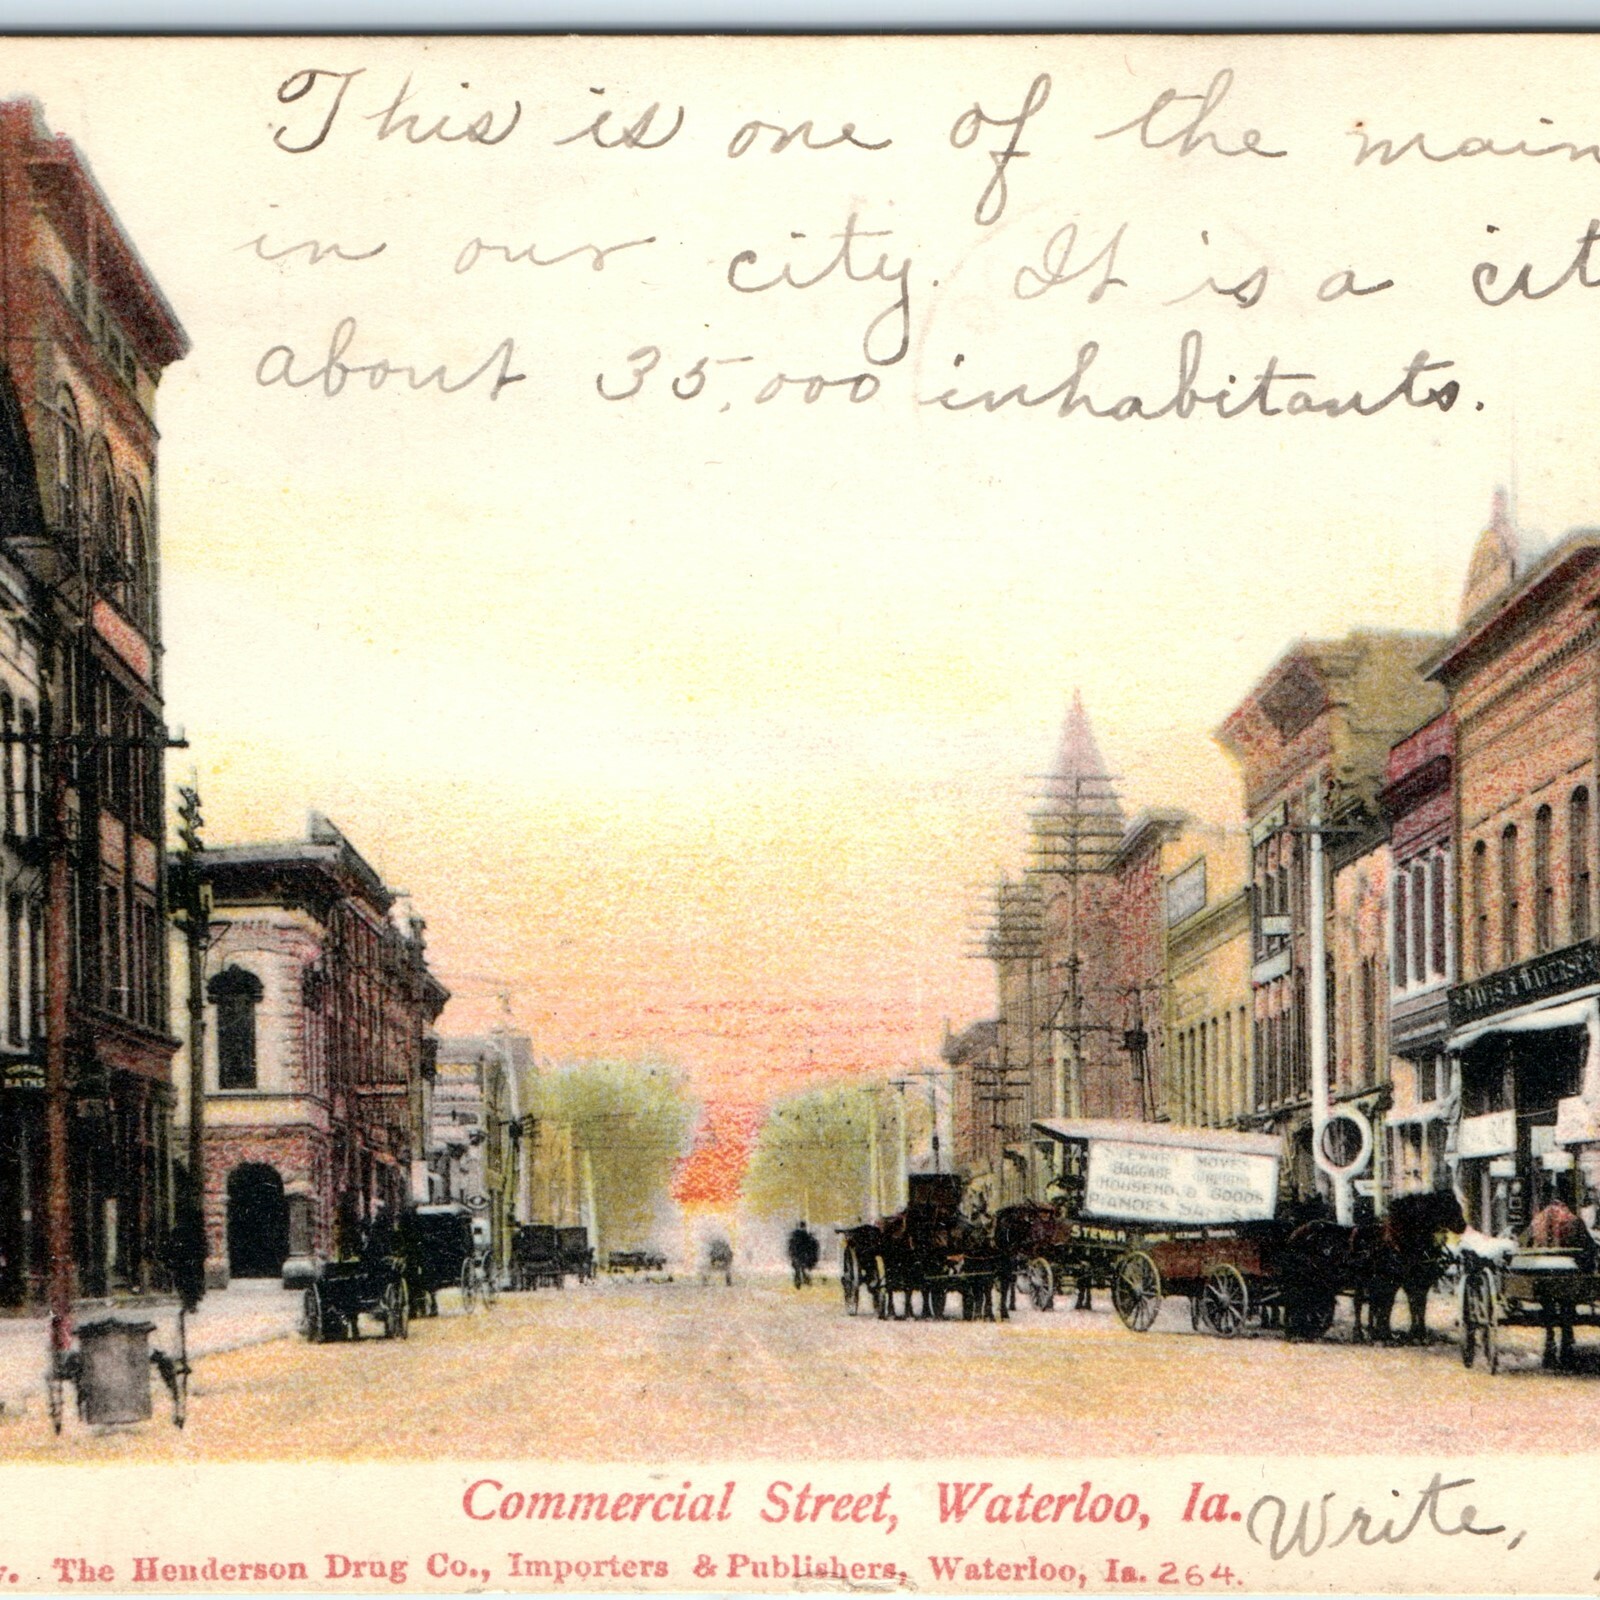 This is one of the main
in our city. It is a cit
about 35,000 inhabitants.
BATHS
STEWART MOVES
BAGGAGE FREIGHT
HOUSEHOLD GOODS
PIANOES SAFES
STEWAR
Commercial Street, Waterloo, Ia.
Write,
y. The Henderson Drug Co., Importers & Publishers, Waterloo, Ia. 264.